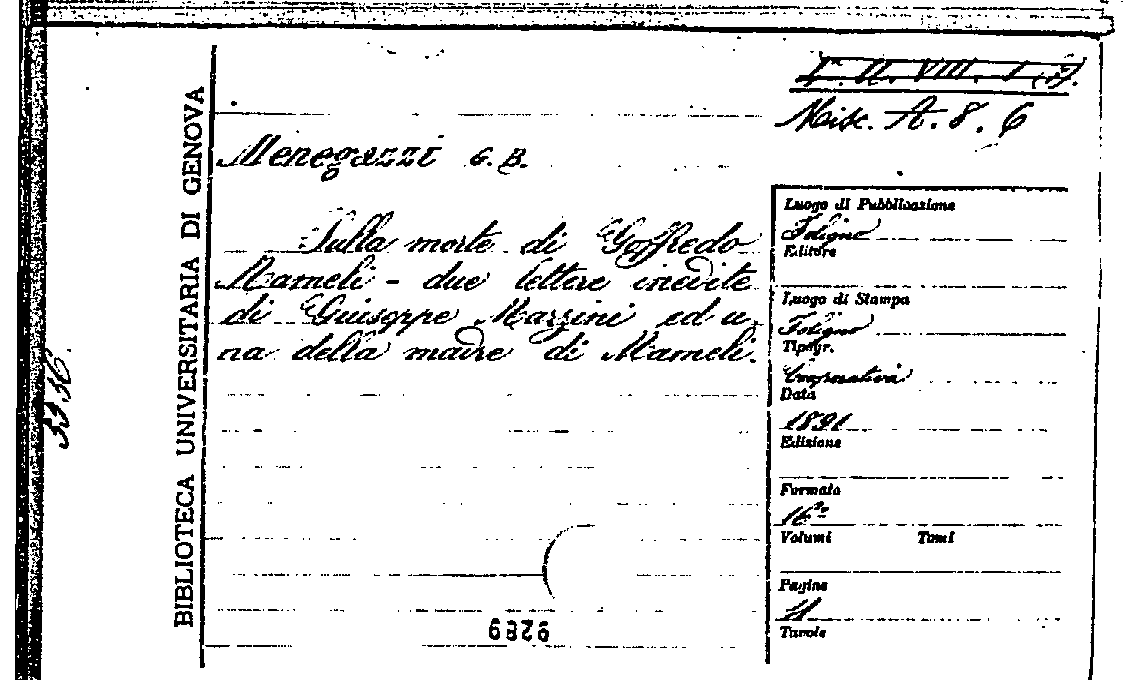 I. II. VIII. 1 (7).
Misc. A. 8. 6
BIBLIOTECA UNIVERSITARIA DI GENOVA
Menegazzi G. B.
Sulla morte di Goffredo
Mameli - due lettere inedite
di Giuseppe Mazzini ed u-
na della madre di Mameli.
Luogo di Pubblicazione
Foligno
Editore
Luogo di Stampa
Foligno
Tipogr.
Cooperativa
Data
1891
Edizione
Formato
16º
Volumi Tomi
Pagine
11
Tavole
9289